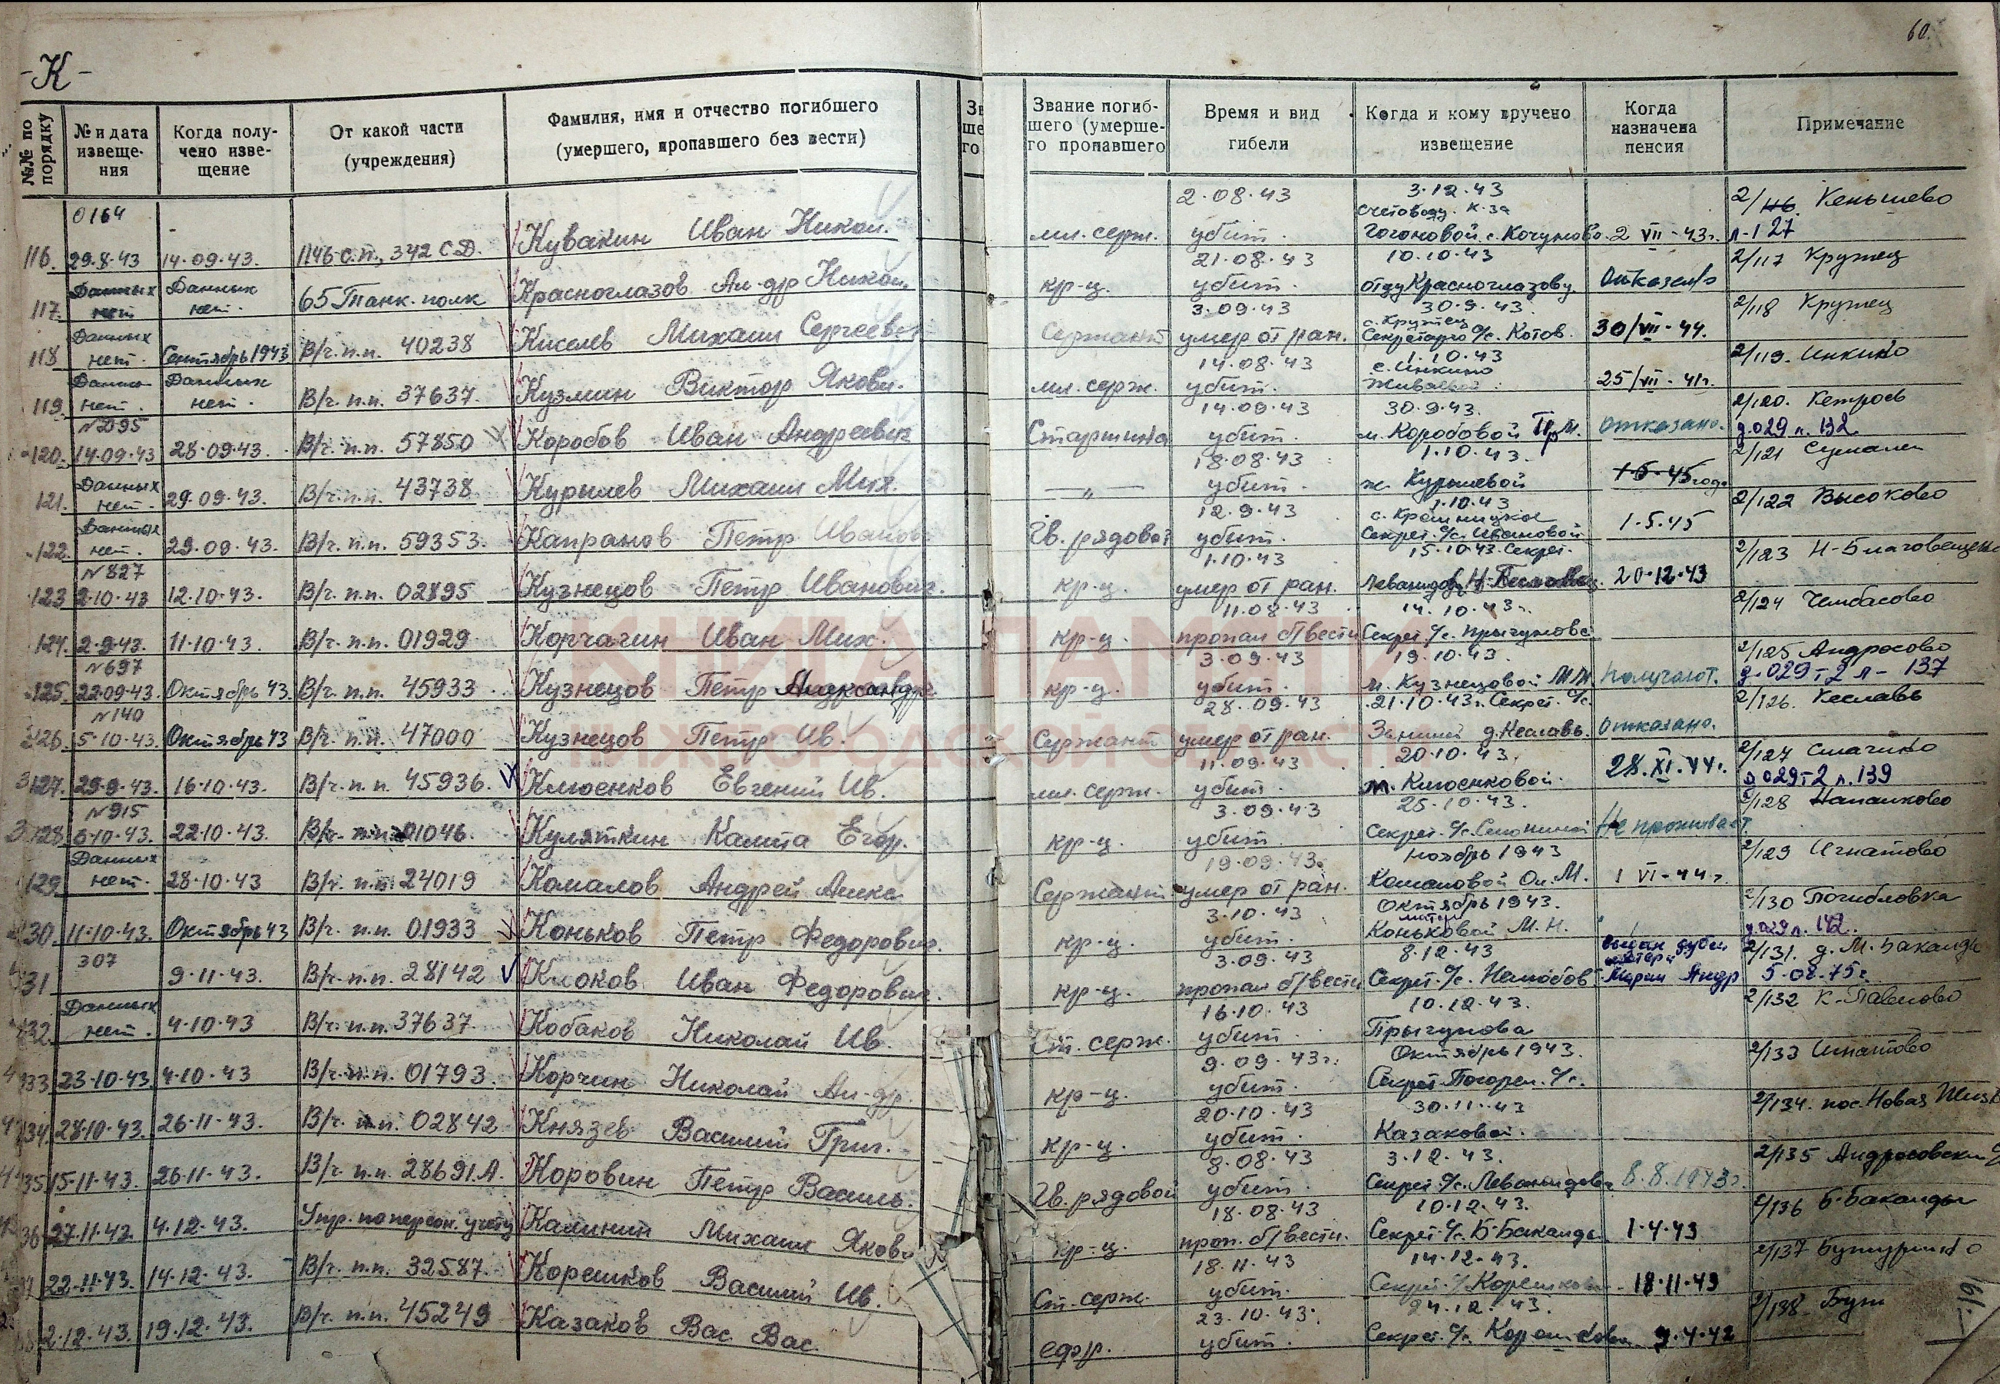 60.
-К-
№№ по порядку
№ и дата извеще-ния
Когда полу-чено изве-щение
От какой части (учреждения)
Фамилия, имя и отчество погибшего (умершего, пропавшего без вести)
Зв
ше
го
Звание погиб-шего (умерше-го пропавшего
Время и вид гибели
Когда и кому вручено извещение
Когда назначена пенсия
Примечание
0164 2.08.43 3.12.43 2/116 Кенышево
116. 29.8.43 14.09.43. 1146 с.п., 342 С.Д. Кувакин Иван Никол. мл. серж. убит. Счетоводу к-за Гогоновой с. Кочуново. 2 VII-43г. л-127
Данных Данных 21.08.43 10.10.43 2/117 Кружец
117. нет нет. 65 Танк. полк Красноглазов Ал-др Никол. кр-ц. убит. отцу Красноглазову Отказано
Данных 3.09.43 30.9.43. 2/118 Кружец
118 нет. Сентябрь 1943 В/ч. п.п. 40238 Киселев Михаил Сергеевич Сержант умер от ран. Секретарю с/с. Котов. 30/VII-44.
Данных 14.08.43 1.10.43 2/119. Инкино
119. нет. нет. В/ч. п.п. 37637. Кузмин Виктор Яковл. мл. серж. убит. с. Инкино 25/VII-41г.
14.09.43 30.9.43. 2/120.
120. 14.09.43 28.09.43. В/ч. п.п. 57850 Коробов Иван Андреевич Старшина убит. м. Коробовой отказано. д.029 л. 132
Данных 18.08.43 1.10.43. 2/121
121. нет. 29.09.43. В/ч. п.п. 43738 Курылев Михаил Мих. —„— убит. ж. Курылевой 1-5-45 года
Данных 12.9.43 1.10.43 2/122 Высоково
122. нет. 29.09.43. В/ч. п.п. 59353. Капранов Петр Иванов Гв. рядовой убит. Секрет. с/с. Ивановой 1.5.45
№827 1.10.43 15.10.43. Секрет. 2/123 Н-Благовещенс
123 2.10.43 12.10.43. В/ч. п.п. 02895 Кузнецов Петр Иванович. кр-ц. умер от ран. 20.12.43
11.08.43 14.10.43г. 2/124 Чембасово
124. 2.9.43. 11.10.43. В/ч. п.п. 01929 Корчагин Иван Мих. кр-ц. пропал б/вести Секрет. с/с. Прыгуновой
№697 3.09.43 19.10.43. 2/125 Андросово
125. 22.09.43. Октябрь 43. В/ч. п.п. 45933 Кузнецов Петр Александр. кр-ц. убит. м. Кузнецовой М.М. получают. д.029т2 л-137
№140 28.09.43 21.10.43г. Секрет. с/с. 2/126. Кеславь
126. 5.10.43. Октябрь 43 В/ч. п.п. 47000 Кузнецов Петр Ив. Сержант умер от ран. д. Кеславь. Отказано.
11.09.43 20.10.43 2/127 Смагино
127. 29.9.43. 16.10.43. В/ч. п.п. 45936. Клюенков Евгений Ив. мл. серж. убит. м. Клюенковой. 28.XI.44г. д029т2 л.139
№915 3.09.43 25.10.43. 2/128
128. 6.10.43. 22.10.43. В/ч. п.п. 01046. Куляткин Калита Егор. кр-ц. убит. Секрет. с/с. Не проживает
Данных 19.09.43. Ноябрь 1943 2/129 Игнатово
129. нет. 28.10.43 В/ч. п.п. 24019 Комалов Андрей Алекс Сержант умер от ран. Комаловой Ол. М. 1 VI-44г.
3.10.43 Октябрь 1943. 2/130 Погибловка
130. 11.10.43. Октябрь 43 В/ч. п.п. 01933 Коньков Петр Федорович. кр-ц. убит. матери Коньковой М.Н. д.029 л. 142.
307 3.09.43 8.12.43 2/131. д. М. Бакалды
131 9.11.43. В/ч. п.п. 28142 Клоков Иван Федорович. кр-ц. пропал б/вести Секрет. с/с. Мария Андр 5.08.75г.
Данных 16.10.43 10.12.43. 2/132 К. Павлово
132. нет. 4.10.43 В/ч. п.п. 37637 Кобаков Николай Ив. Ст. серж. убит. Прыгунова
9.09.43г. Октябрь 1943. 2/133 Игнатово
133 23.10.43. 4.10.43 В/ч. п.п. 01793. Корчин Николай Ал-др. кр-ц. убит. Секрет. Погорел. с/с.
20.10.43 30.11.43 2/134. пос. Новая Жизн
134 28.10.43. 26.11.43. В/ч. п.п. 02842 Князев Василий Григ. кр-ц. убит. Казаковой.
8.08.43 3.12.43. 2/135 Андросовский
135 15.11.43. 26.11.43. В/ч. п.п. 28691.А. Коровин Петр Василь. Гв. рядовой убит. Секрет. с/с. 8.8.1943г.
18.08.43 10.12.43. 2/136 Б-Бакалды
36 27.11.42. 4.12.43. Упр. по персон. учету Калинин Михаил Яковл кр-ц. проп. б/вести. Секрет. с/с Б-Бакалды 1.4.43
18.11.43 14.12.43. 2/137 Бутурлино
22.11.43. 14.12.43. В/ч. п.п. 32587. Корешков Василий Ив. Ст. серж. убит. 18.11.43
23.10.43. 24.12.43. 2/138
2.12.43. 19.12.43. В/ч. п.п. 45249 Казаков Вас. Вас. ефр. убит. Секрет. с/с. 9.4.42
КНИГА ПАМЯТИ
НИЖЕГОРОДСКОЙ ОБЛАСТИ